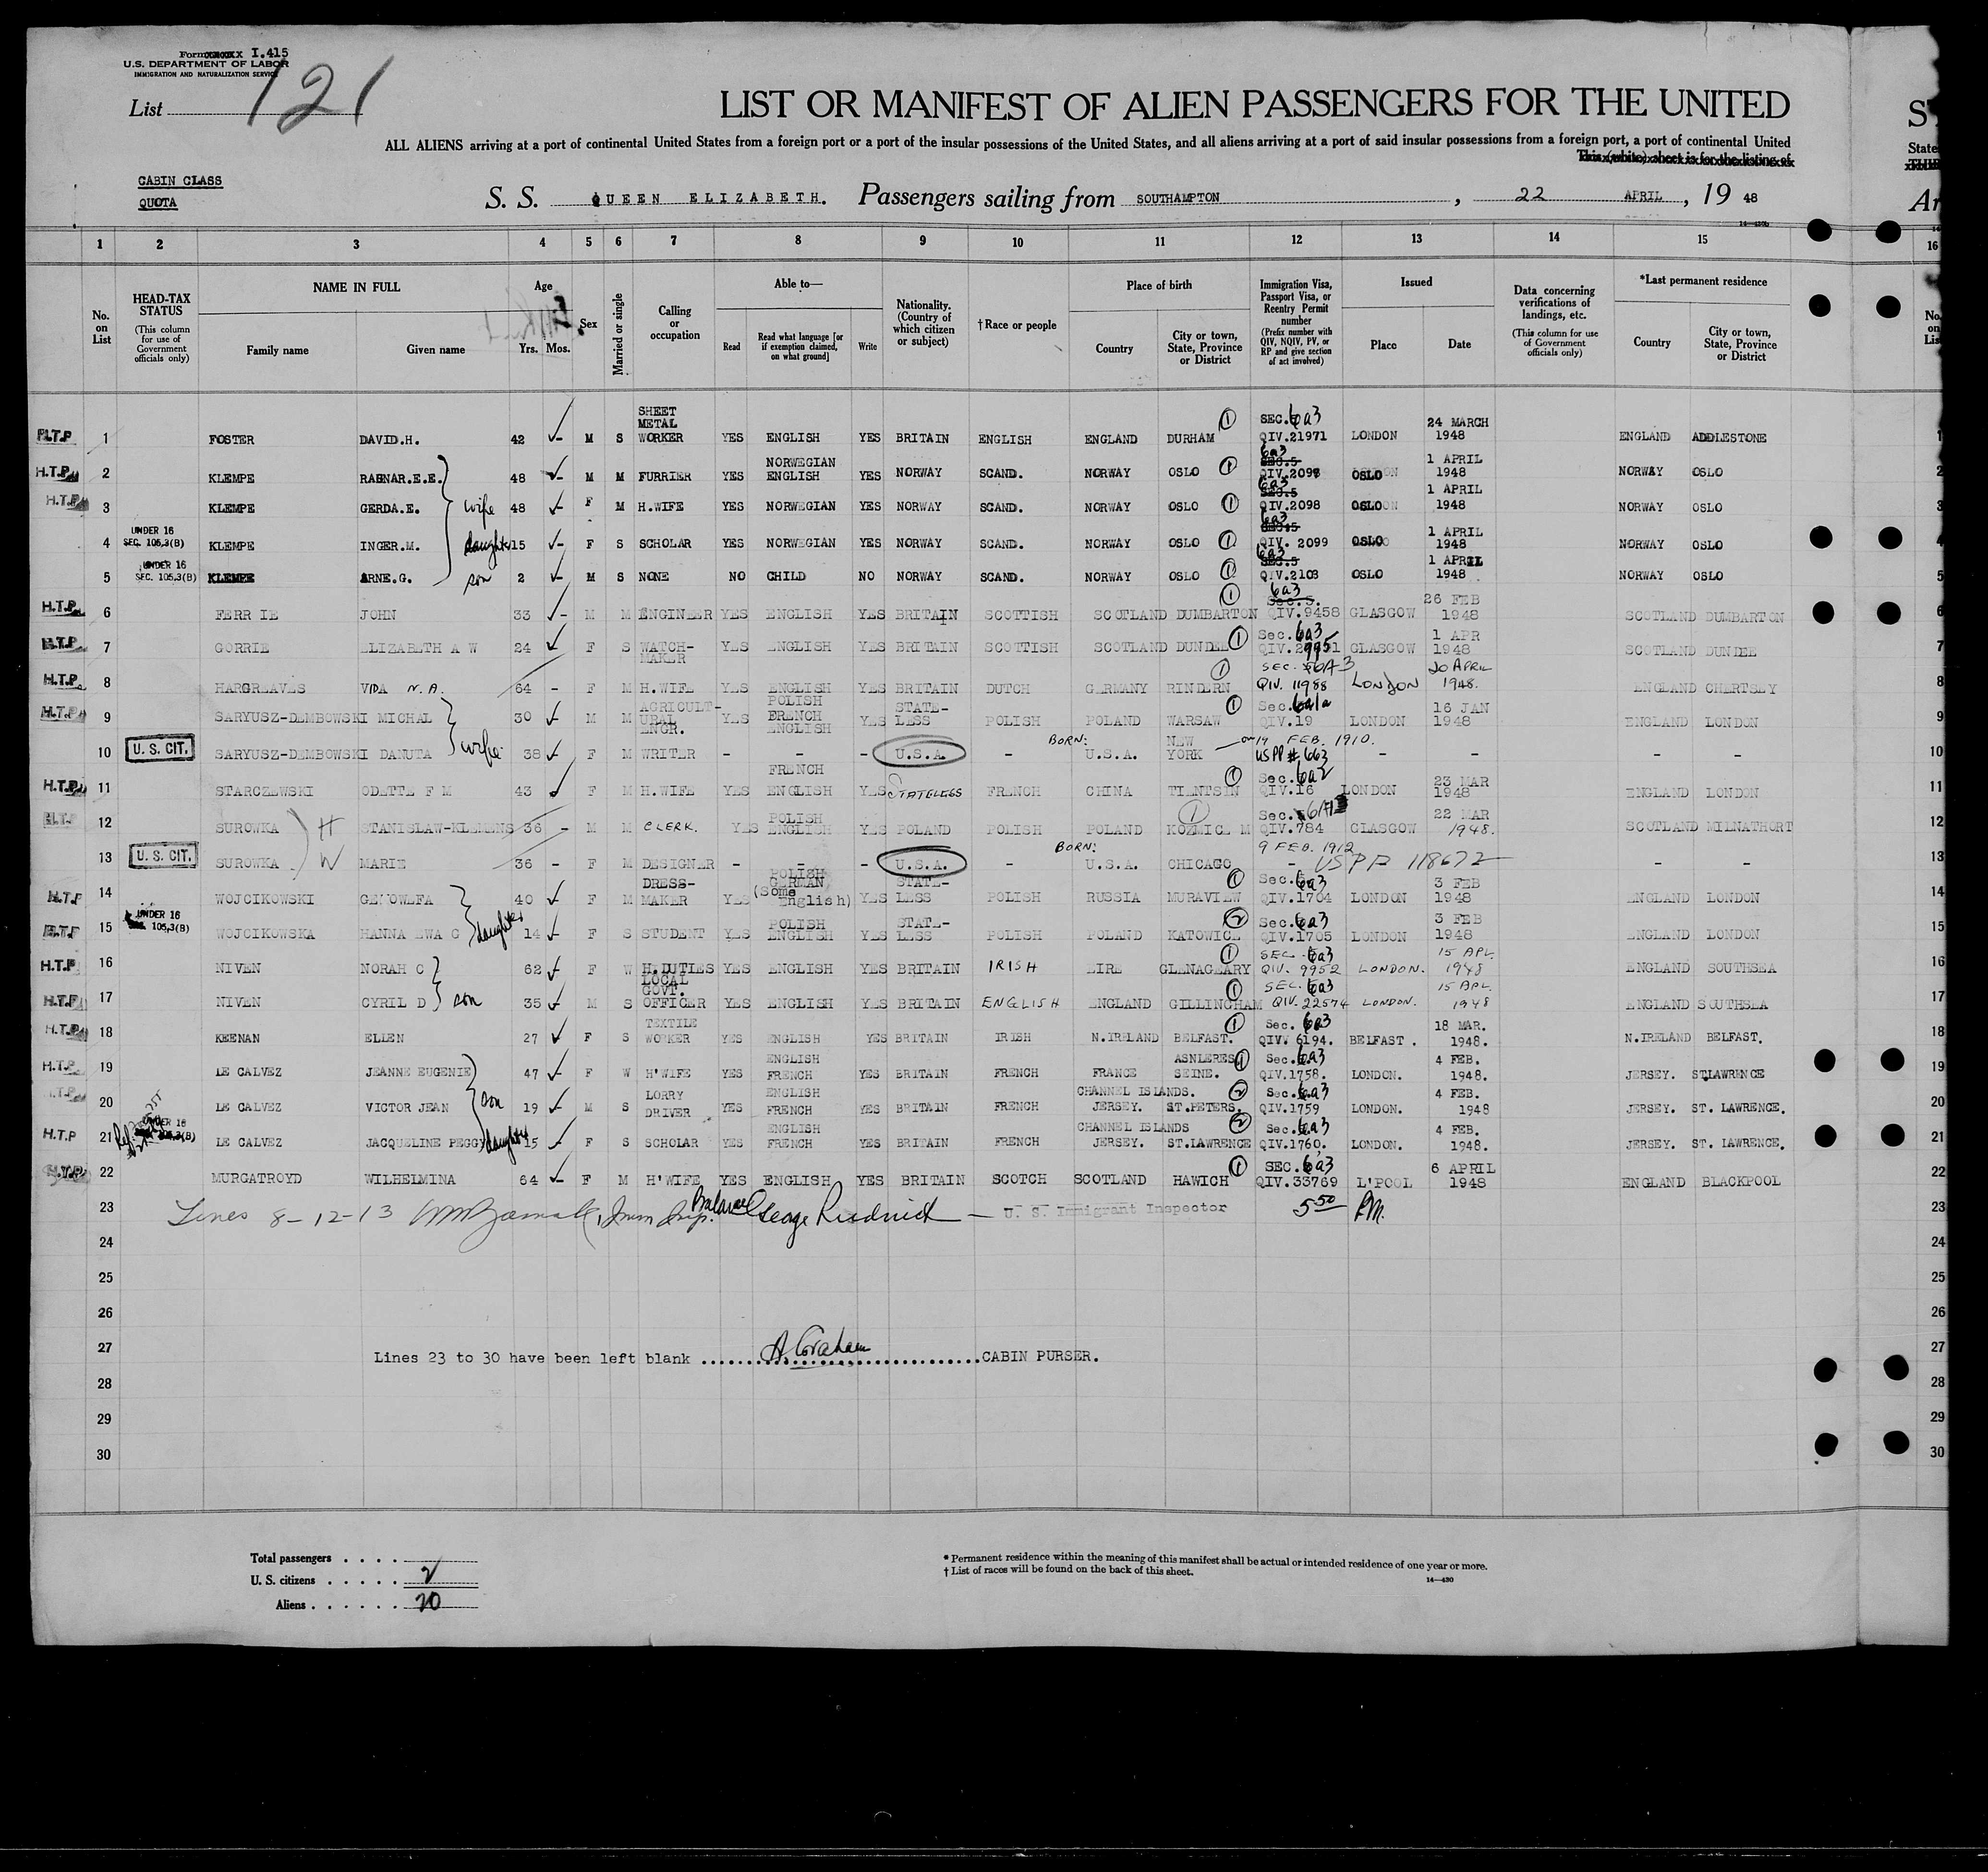 Form I.415
U.S. DEPARTMENT OF LABOR
IMMIGRATION AND NATURALIZATION SERVICE
List 121
LIST OR MANIFEST OF ALIEN PASSENGERS FOR THE UNITED
ALL ALIENS arriving at a port of continental United States from a foreign port or a port of the insular possessions of the United States, and all aliens arriving at a port of said insular possessions from a foreign port, a port of continental United
This (white) sheet is for the listing of
State
CABIN CLASS
QUOTA
S. S. QUEEN ELIZABETH. Passengers sailing from SOUTHAMPTON, 22 APRIL, 19 48
1 2 3 4 5 6 7 8 9 10 11 12 13 14 15 16
No. on List
HEAD-TAX STATUS (This column for use of Government officials only)
NAME IN FULL Family name Given name
Age Yrs. Mos.
Sex
Married or single
Calling or occupation
Able to— Read Read what language [or if exemption claimed, on what ground] Write
Nationality. (Country of which citizen or subject)
†Race or people
Place of birth Country City or town, State, Province or District
Immigration Visa, Passport Visa, or Reentry Permit number (Prefix number with QIV, NQIV, PV, or RP and give section of act involved)
Issued Place Date
Data concerning verifications of landings, etc. (This column for use of Government officials only)
*Last permanent residence Country City or town, State, Province or District
H.T.P 1 FOSTER DAVID.H. 42 - M S SHEET METAL WORKER YES ENGLISH YES BRITAIN ENGLISH ENGLAND DURHAM 1 SEC. 6a3 QIV.21971 LONDON 24 MARCH 1948 ENGLAND ADDLESTONE
H.T.P. 2 KLEMPE RAGNAR.E.E. 48 - M M FURRIER YES NORWEGIAN ENGLISH YES NORWAY SCAND. NORWAY OSLO 1 6a3 SEC.5 QIV.2097 OSLO 1 APRIL 1948 NORWAY OSLO
H.T.P 3 KLEMPE GERDA.E. wife 48 - F M H.WIFE YES NORWEGIAN YES NORWAY SCAND. NORWAY OSLO 1 6a3 SEC.5 QIV.2098 OSLO 1 APRIL 1948 NORWAY OSLO
UNDER 16 SEC. 105.3(B) 4 KLEMPE INGER.M. daughter 15 - F S SCHOLAR YES NORWEGIAN YES NORWAY SCAND. NORWAY OSLO 1 6a3 SEC.5 QIV. 2099 OSLO 1 APRIL 1948 NORWAY OSLO
UNDER 16 SEC. 105.3(B) 5 KLEMPE ARNE.G. son 2 - M S NONE NO CHILD NO NORWAY SCAND. NORWAY OSLO 1 6a3 SEC.5 QIV.2103 OSLO 1 APRIL 1948 NORWAY OSLO
H.T.P. 6 FERRIE JOHN 33 - M M ENGINEER YES ENGLISH YES BRITAIN SCOTTISH SCOTLAND DUMBARTON 1 6a3 Sec.5. QIV.9458 GLASGOW 26 FEB 1948 SCOTLAND DUMBARTON
H.T.P. 7 GORRIE ELIZABETH A W 24 F S WATCH-MAKER YES ENGLISH YES BRITAIN SCOTTISH SCOTLAND DUNDEE 1 Sec. 6a3 GLASGOW 1 APR 1948 SCOTLAND DUNDEE
H.T.P. 8 HARGREAVES VIDA N.A. 64 - F M H.WIFE YES ENGLISH YES BRITAIN DUTCH GERMANY RINDERN 1 SEC. 6A3 QIV. 11988 LONDON 20 APRIL 1948. ENGLAND CHERTSEY
H.T.P. 9 SARYUSZ-DEMBOWSKI MICHAL 30 - M M AGRICULT-URAL ENGR. YES POLISH FRENCH ENGLISH YES STATE-LESS POLISH POLAND WARSAW 1 Sec. 6a1a QIV.19 LONDON 16 JAN 1948 ENGLAND LONDON
U. S. CIT. 10 SARYUSZ-DEMBOWSKI DANUTA wife 38 - F M WRITER - - - U.S.A. - BORN: U.S.A. NEW YORK on 19 FEB. 1910. USPP # 663 - - - -
H.T.P. 11 STARCZEWSKI ODETTE F M 43 F M H.WIFE YES FRENCH ENGLISH YES STATELESS FRENCH CHINA TIENTSIN 1 Sec. 6a2 QIV.16 LONDON 23 MAR 1948 ENGLAND LONDON
H.T.P 12 SUROWKA H STANISLAW-KLEMENS 36 - M M CLERK. YES POLISH ENGLISH YES POLAND POLISH POLAND KOZMICE M 1 Sec. 6A3 QIV.784 GLASGOW 22 MAR 1948. SCOTLAND MILNATHORT
U. S. CIT. 13 SUROWKA W MARIE 36 - F M DESIGNER - - - U.S.A. - BORN: U.S.A. CHICAGO 9 FEB. 1912 - USPP 118672 - -
H.T.P 14 WOJCIKOWSKI GENOWEFA 40 - F M DRESS-MAKER YES POLISH GERMAN (Some English) YES STATE-LESS POLISH RUSSIA MURAVIEW 1 Sec. 6a3 QIV.1704 LONDON 3 FEB 1948 ENGLAND LONDON
UNDER 16 SEC. 105.3(B) H.T.P 15 WOJCIKOWSKA HANNA EWA C daughter 14 - F S STUDENT YES POLISH ENGLISH YES STATE-LESS POLISH POLAND KATOWICE 2 Sec. 6a3 QIV.1705 LONDON 3 FEB 1948 ENGLAND LONDON
H.T.P 16 NIVEN NORAH C 62 - F W H.DUTIES YES ENGLISH YES BRITAIN IRISH EIRE GLENAGEARY 1 SEC. 6a3 QIV. 9952 LONDON. 15 APL. 1948 ENGLAND SOUTHSEA
H.T.P 17 NIVEN CYRIL D son 35 - M S LOCAL GOVT. OFFICER YES ENGLISH YES BRITAIN ENGLISH ENGLAND GILLINGHAM 1 SEC. 6a3 QIV. 22574 LONDON. 15 APL. 1948 ENGLAND SOUTHSEA
H.T.P. 18 KEENAN ELLEN 27 F S TEXTILE WORKER YES ENGLISH YES BRITAIN IRISH N.IRELAND BELFAST. 1 Sec. 6a3 QIV. 6194. BELFAST. 18 MAR. 1948. N.IRELAND BELFAST.
H.T.P. 19 LE CALVEZ JEANNE EUGENIE 47 - F W H'WIFE YES ENGLISH FRENCH YES BRITAIN FRENCH FRANCE ASNLERES SEINE. 1 Sec. 6a3 QIV.1758. LONDON. 4 FEB. 1948. JERSEY. ST.LAWRENCE
H.T.P. 20 LE CALVEZ VICTOR JEAN son 19 - M S LORRY DRIVER YES ENGLISH FRENCH YES BRITAIN FRENCH CHANNEL ISLANDS. JERSEY. ST.PETERS. 2 Sec. 6a3 QIV.1759 LONDON. 4 FEB. 1948 JERSEY. ST. LAWRENCE.
H.T.P UNDER 16 105.3(B) 21 LE CALVEZ JACQUELINE PEGGY daughter 15 - F S SCHOLAR YES ENGLISH FRENCH YES BRITAIN FRENCH CHANNEL ISLANDS JERSEY. ST.LAWRENCE 2 Sec. 6a3 QIV.1760. LONDON. 4 FEB. 1948. JERSEY. ST. LAWRENCE.
H.T.P. 22 MURGATROYD WILHELMINA 64 - F M H'WIFE YES ENGLISH YES BRITAIN SCOTCH SCOTLAND HAWICH 1 SEC. 6a3 QIV.33769 L'POOL 6 APRIL 1948 ENGLAND BLACKPOOL
23 Lines 8-12-13 Imm Insp. Balance George — U. S. Immigrant Inspector 5 50 P.M.
24
25
26
27 Lines 23 to 30 have been left blank A. Graham CABIN PURSER.
28
29
30
Total passengers . . . .
U. S. citizens . . . . . 2
Aliens . . . . . . 20
* Permanent residence within the meaning of this manifest shall be actual or intended residence of one year or more.
† List of races will be found on the back of this sheet.
14—430